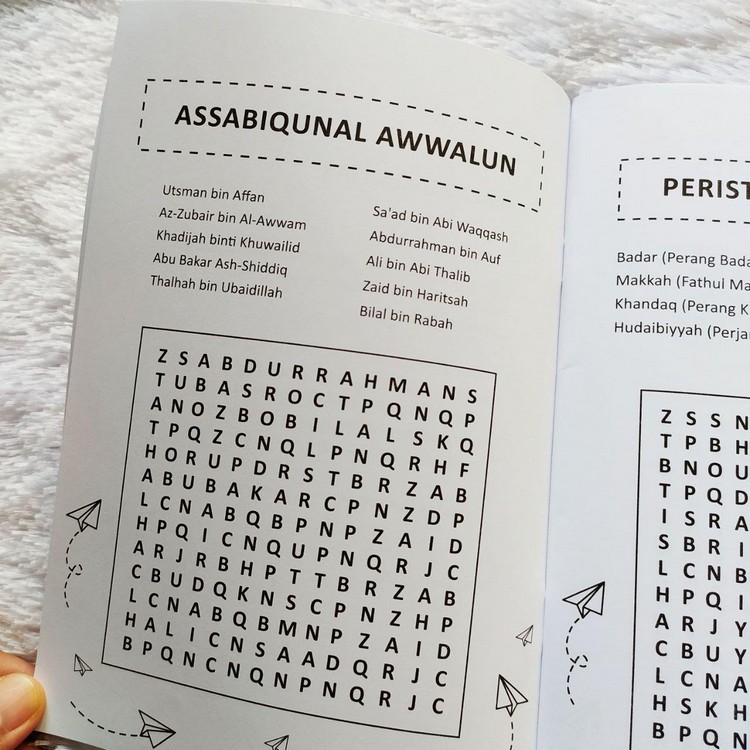 ASSABIQUNAL AWWALUN
Utsman bin Affan
Az-Zubair bin Al-Awwam
Khadijah binti Khuwailid
Abu Bakar Ash-Shiddiq
Thalhah bin Ubaidillah
Sa'ad bin Abi Waqqash
Abdurrahman bin Auf
Ali bin Abi Thalib
Zaid bin Haritsah
Bilal bin Rabah
Z S A B D U R R A H M A N S
T U B A S R O C T P Q N Q P
A N O Z B O B I L A L S K Q
T P Q Z C N Q L P N Q R H F
H O R U P D R S T B R Z A B
A B U B A K A R C P N Z D P
L C N A B Q B P N P Z A I D
H P Q I C N Q U P N Q R J C
A R J R B H P T T B R Z A B
C B U D Q K N S C P N Z H P
L C N A B Q B M N P Z A I D
H A L I C N S A A D Q R J C
B P Q N C N Q N P N Q R J C
PERIST
Badar (Perang Bada
Makkah (Fathul Ma
Khandaq (Perang K
Hudaibiyyah (Perja
Z S S N
T P B H
B N O U
T P Q D
I S R A
S B R I
L C N B
H P Q I
A R J Y
C B U Y
L C N A
H S K H
B P Q N